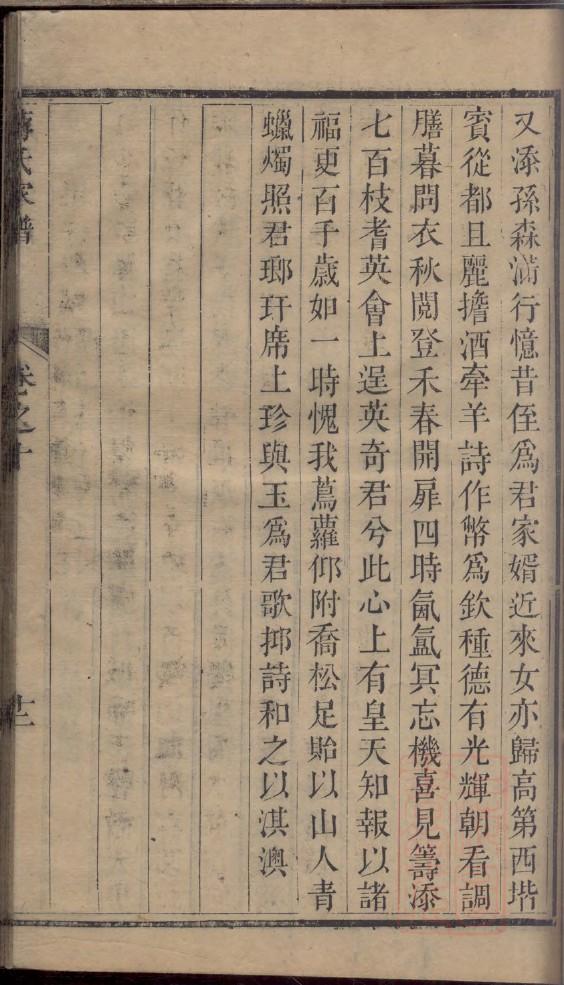 又添孫森滿行憶昔侄爲君家婿近來女亦歸高第西堦
賓從都且麗擔酒牽羊詩作幣爲欽種德有光輝朝看調
膳暮問衣秋閱登禾春開扉四時氤氳冥忘機喜見籌添
七百枝耆英會上逞英奇君兮此心上有皇天知報以諸
福更百千歲如一時愧我蔦蘿仰附喬松足貽以山人青
蠟燭照君瑯玕席上珍與玉爲君歌抑詩和之以淇澳
氏家譜
卷之十
十二